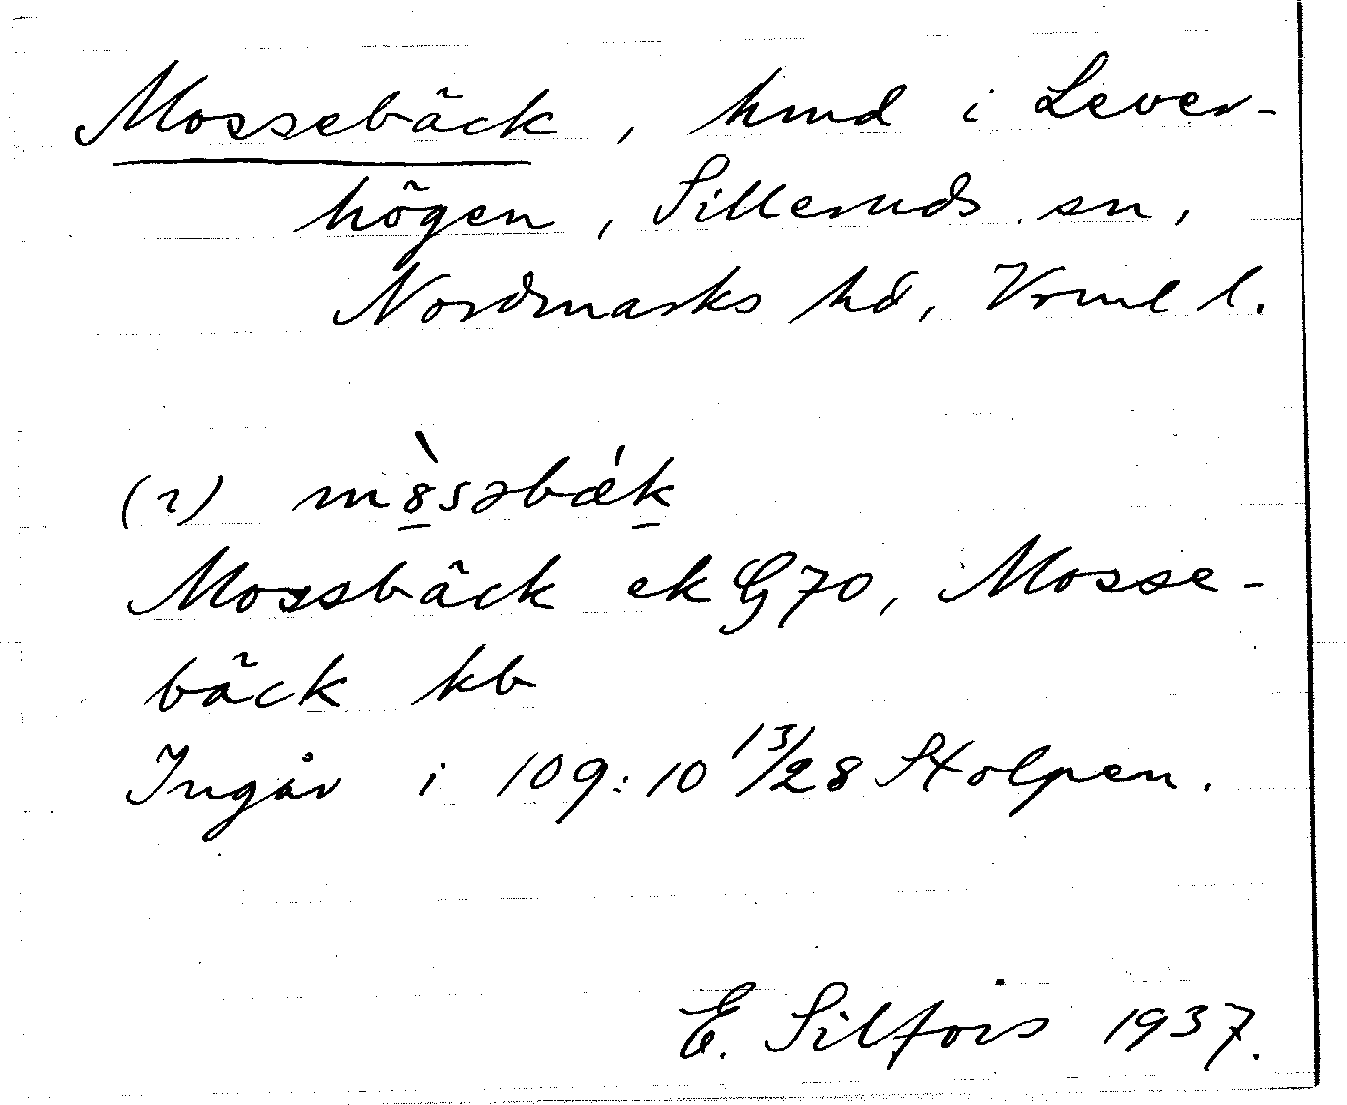 Mossebäck, hmd i Lever-
högen, Silleruds sn,
Nordmarks hd, Vrml l.
(2) mòsəbǽk
Mossbäck ek G70, Mosse-
bäck kb
Ingår i 109:10 13/28 Stolpen.
E. Silfors 1937.